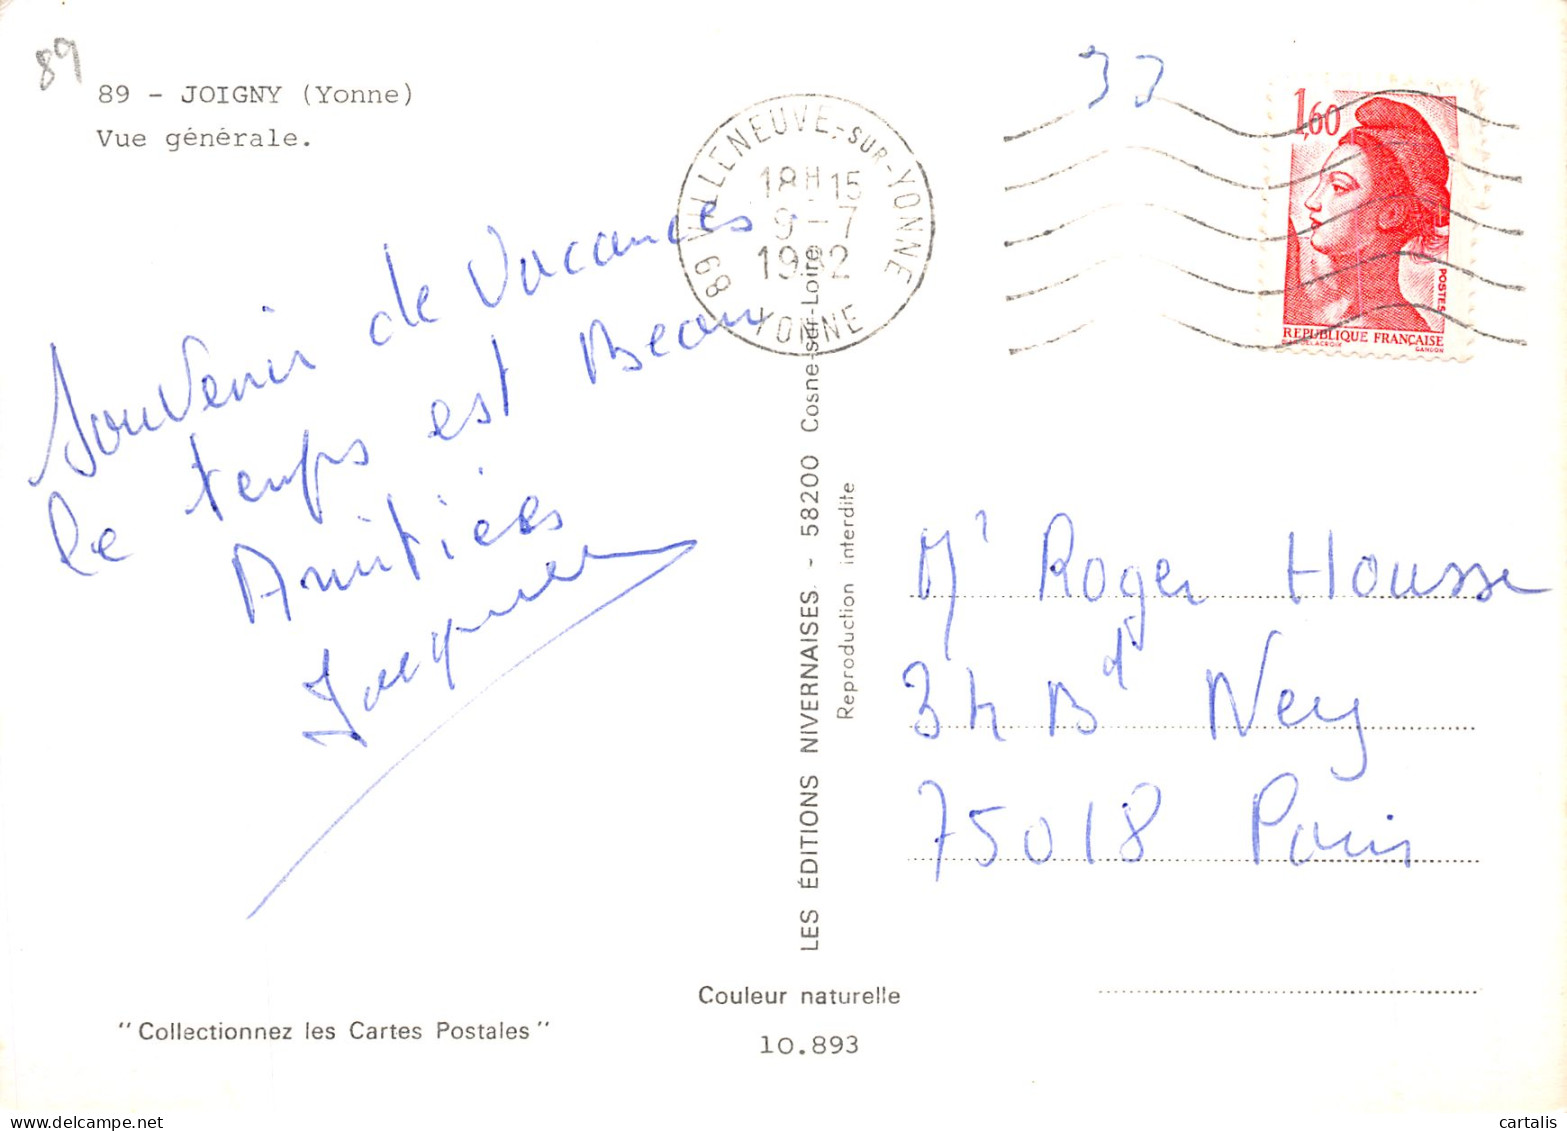 89
89 - JOIGNY (Yonne)
Vue générale.
33
89 VILLENEUVE-SUR-YONNE
18H15
9-7
1982
YONNE
1,60
POSTES
REPUBLIQUE FRANÇAISE
D'AP. DELACROIX GANDON
Souvenir de Vacances
le temps est Beau
Amitiées
Jacques
LES ÉDITIONS NIVERNAISES - 58200 Cosne-sur-Loire
Reproduction interdite
Mr Roger Housse
34 Bd Ney
75018 Paris
Couleur naturelle
10.893
"Collectionnez les Cartes Postales"
cartalis